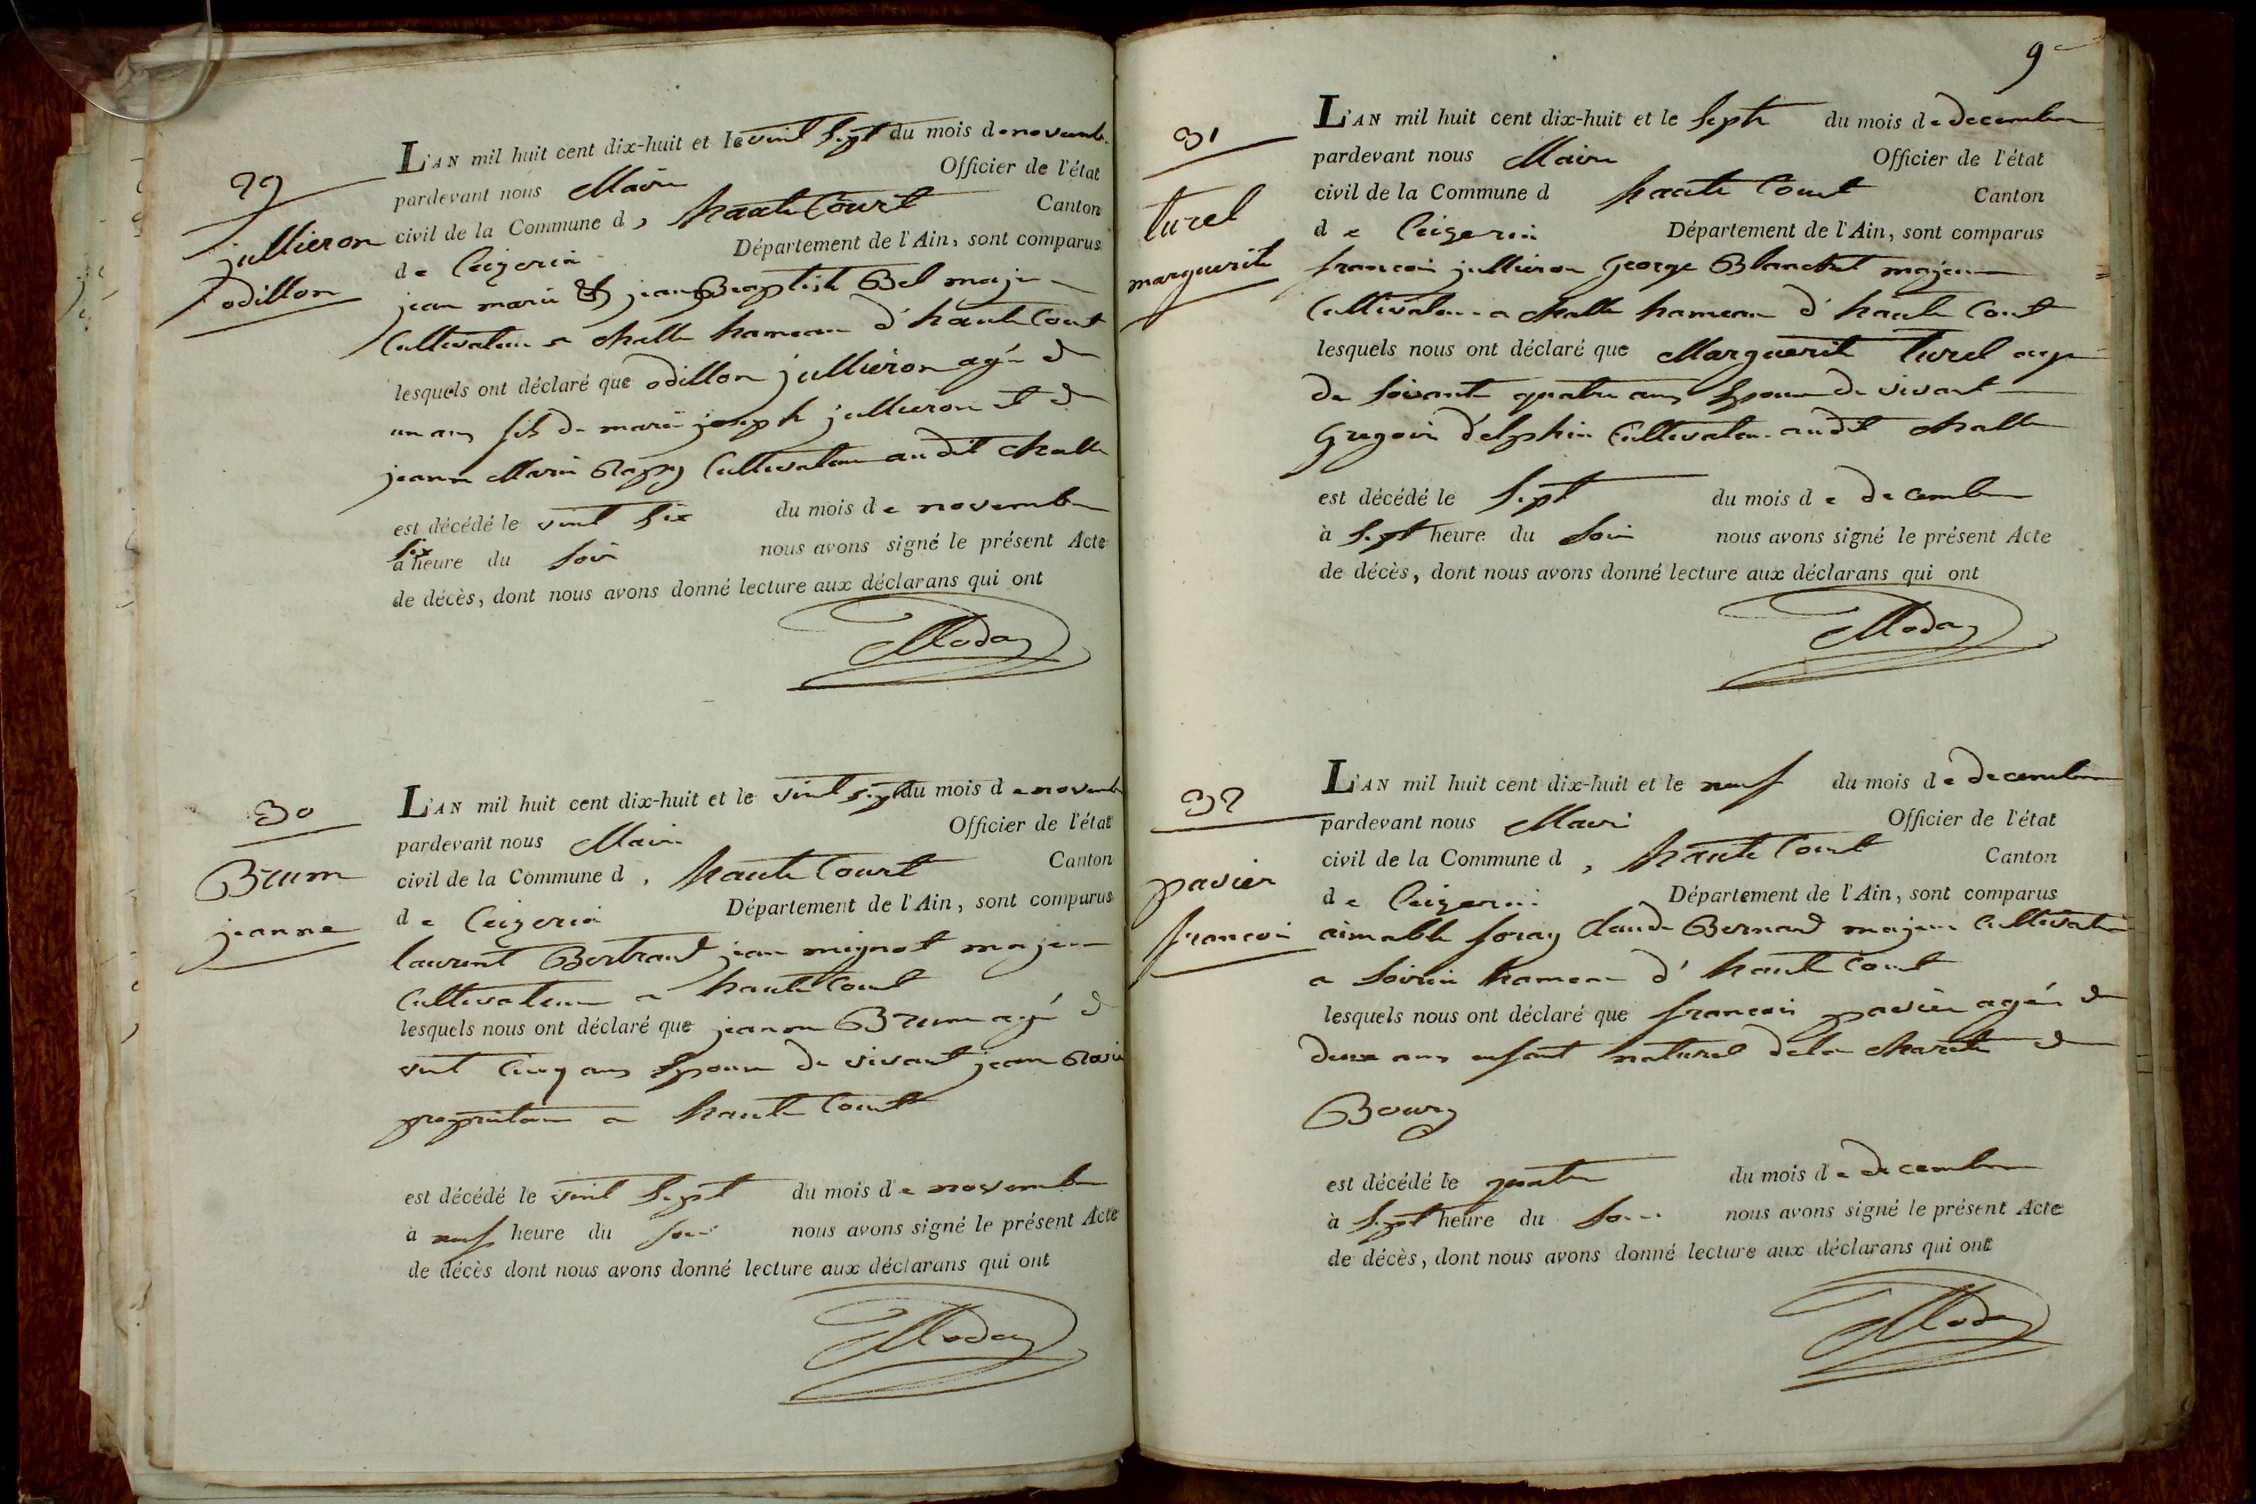 29
jullieron
odillon
L'AN mil huit cent dix-huit et le vint sept du mois de novemb.
pardevant nous Maire Officier de l'état
civil de la Commune d, haute Court Canton
de Ceizeria Département de l'Ain, sont comparus
jean marie jean Baptiste Bel majeur
Cultivateur a challe hameau d'haute Court
lesquels ont déclaré que odillon jullieron agé de
un ans fils de marie joseph jullieron et de
jeanne Marie Cultivateur audit challe
est décédé le vint six du mois de novembre
à six heure du soir nous avons signé le présent Acte
de décès, dont nous avons donné lecture aux déclarans qui ont
Moday
30
Brum
jeanne
L'AN mil huit cent dix-huit et le vint sept du mois de novemb
pardevant nous Maire Officier de l'état
civil de la Commune d, haute Court Canton
de Ceizeria Département de l'Ain, sont comparus
laurent Bertrand jean mignot majeur
Cultivateur a haute Court
lesquels nous ont déclaré que jeanne Brum agé de
vint Cinq ans Epouse de vivant jean
propriétaire a haute Court
est décédé le vint sept du mois de novembre
à neuf heure du soir nous avons signé le présent Acte
de décès dont nous avons donné lecture aux déclarans qui ont
Moday
9
31
turel
marguerite
L'AN mil huit cent dix-huit et le septe du mois de decembre
pardevant nous Maire Officier de l'état
civil de la Commune d haute Court Canton
de Ceizeria Département de l'Ain, sont comparus
francois jullieron George Blanchet majeur
Cultivateur a challe hameau d'haute Court
lesquels nous ont déclaré que Marguerite turel agé
de soixante quatre ans Epouse de vivant
Gregoire delphin Cultivateur audit challe
est décédé le sept du mois de decembre
à sept heure du soir nous avons signé le présent Acte
de décès, dont nous avons donné lecture aux déclarans qui ont
Moday
32
pavier
francois
L'AN mil huit cent dix-huit et le neuf du mois de decembre
pardevant nous Maire Officier de l'état
civil de la Commune d, haute Court Canton
de Ceizeria Département de l'Ain, sont comparus
aimable foray Claude Bernard majeur Cultivateur
a hameau d'haute Court
lesquels nous ont déclaré que francois pavier agé de
deux ans enfant naturel de la charité de
Bourg
est décédé le quatre du mois de decembre
à sept heure du soir nous avons signé le présent Acte
de décès, dont nous avons donné lecture aux déclarans qui ont
Moday